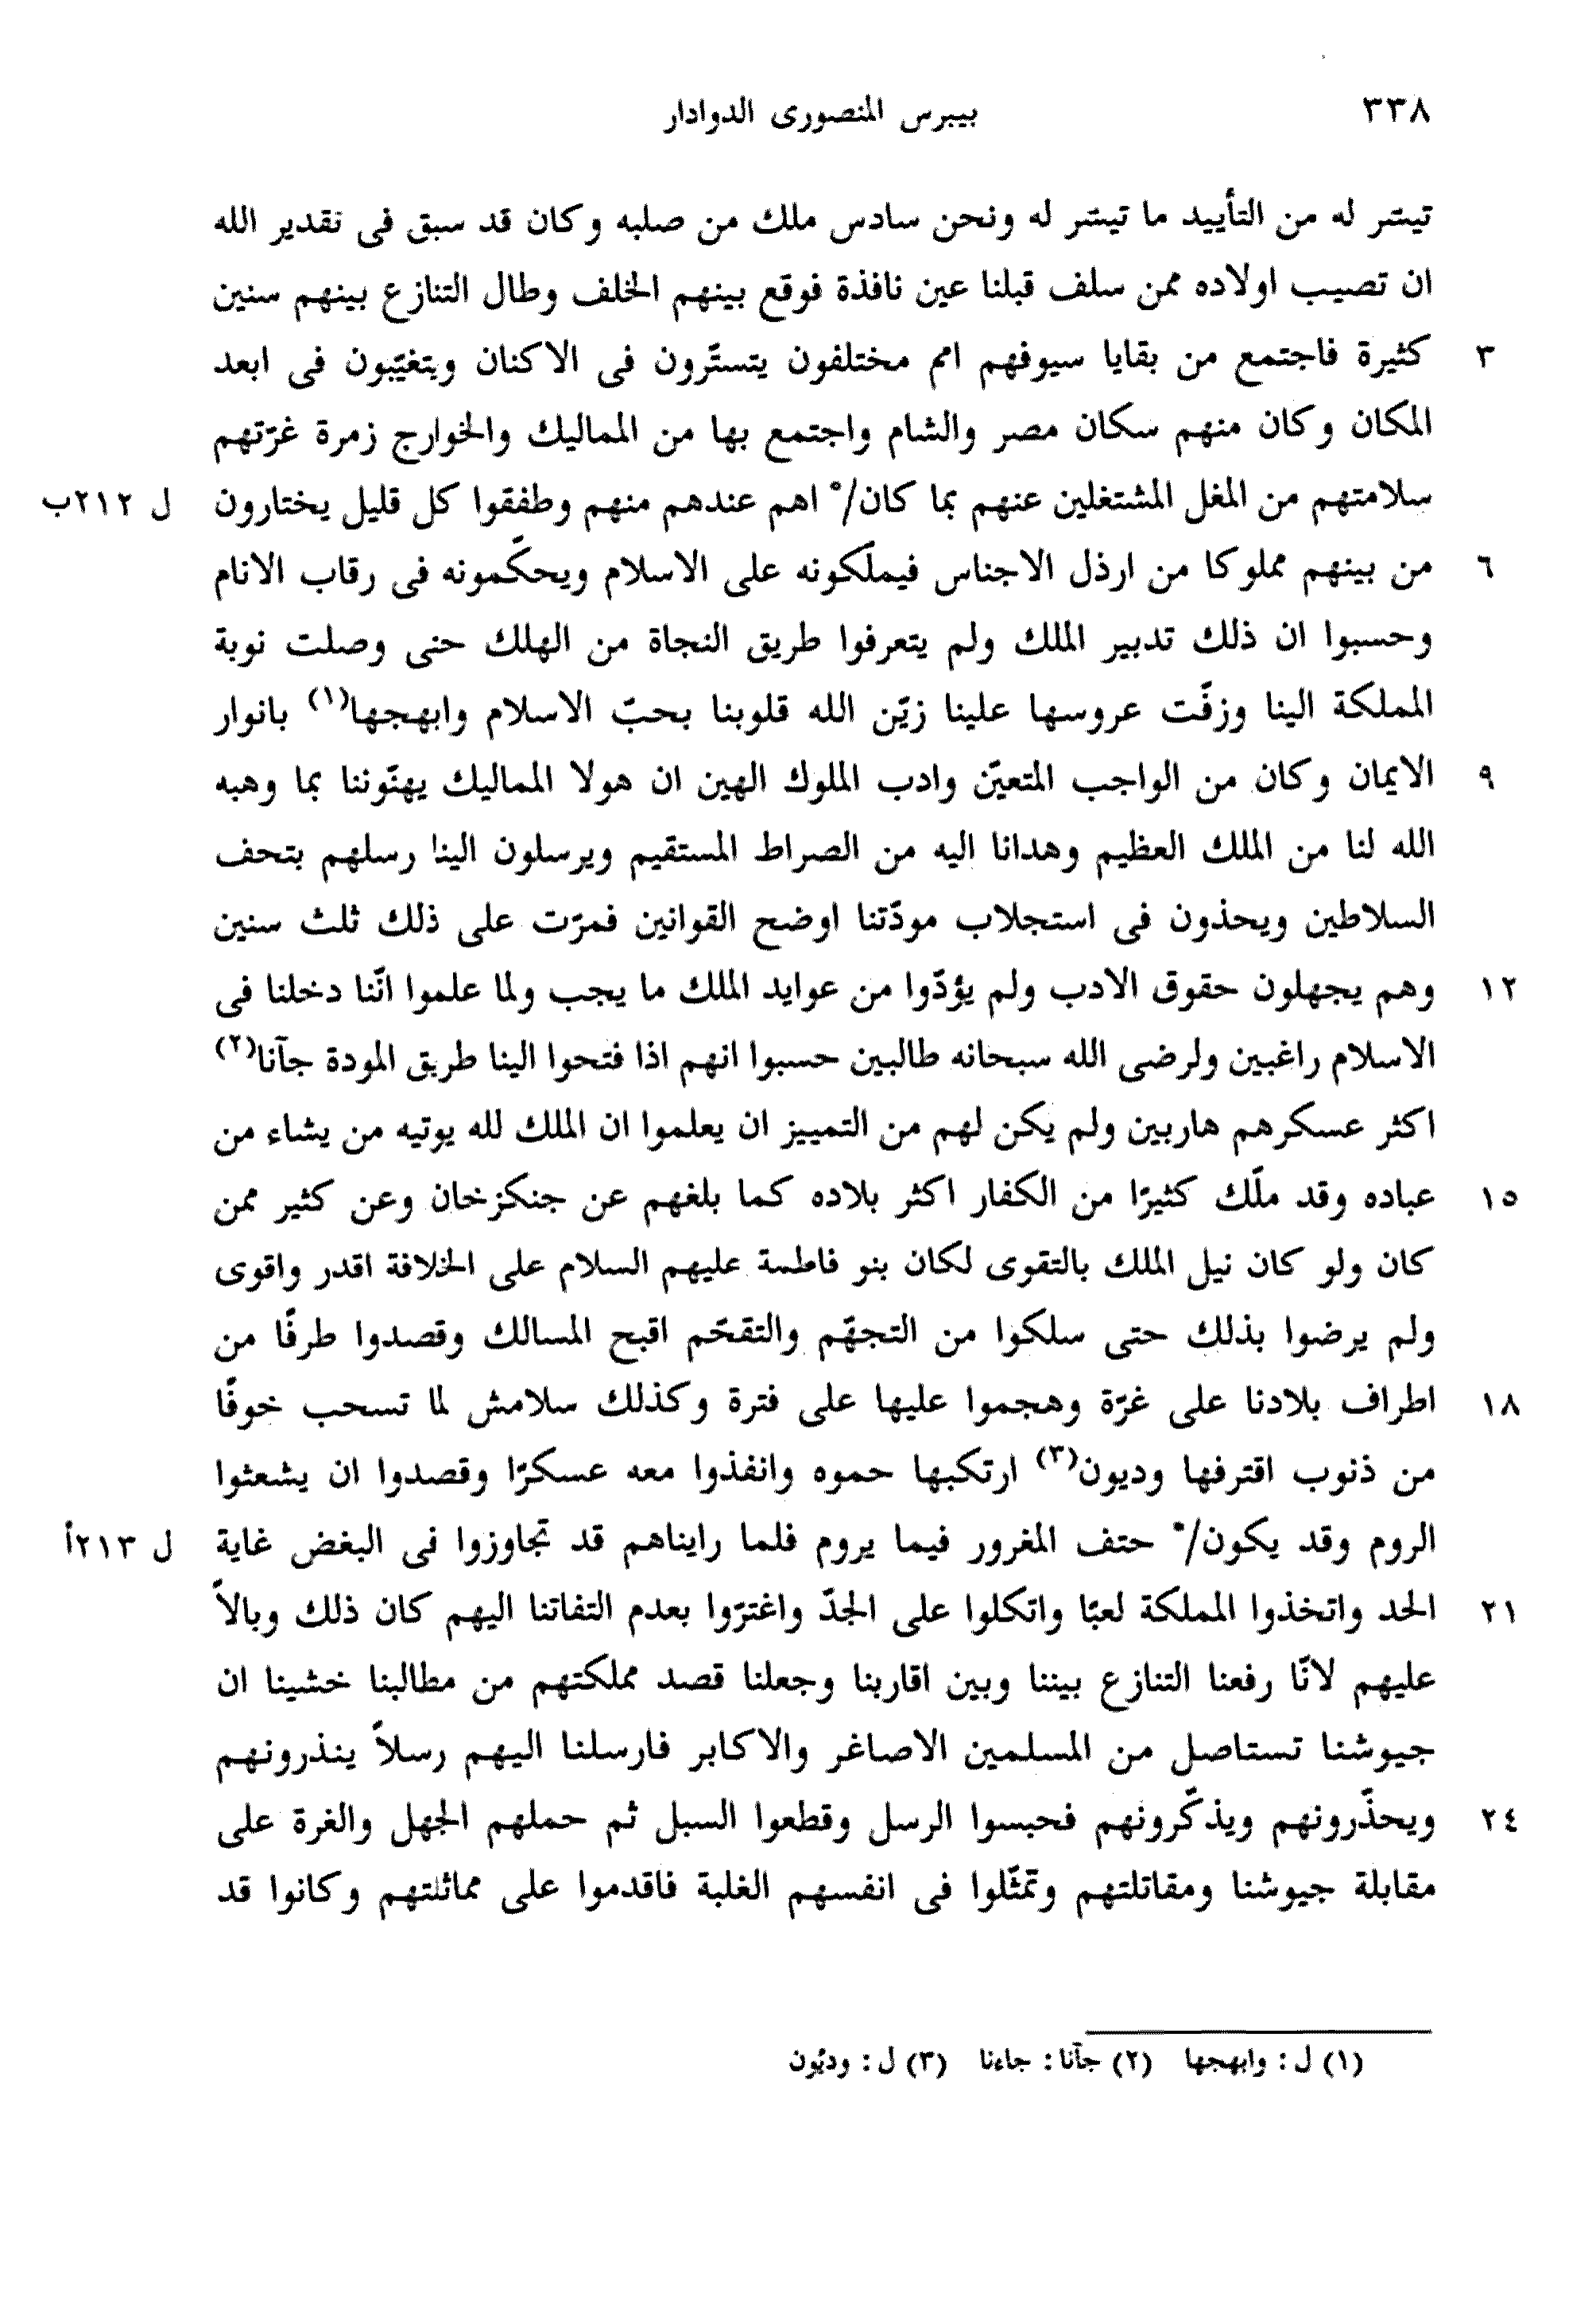 ٣٣٨ بيبرس المنصورى الدوادار
تيسّر له من التأييد ما تيسّر له ونحن سادس ملك من صلبه وكان قد سبق فى تقدير الله
ان تصيب اولاده ممن سلف قبلنا عين نافذة فوقع بينهم الخلف وطال التنازع بينهم سنين
٣ كثيرة فاجتمع من بقايا سيوفهم امم مختلفون يتستّرون فى الاكنان ويتغيّبون فى ابعد
المكان وكان منهم سكان مصر والشام واجتمع بها من المماليك والخوارج زمرة غرّتهم
سلامتهم من المغل المشتغلين عنهم بما كان/* اهم عندهم منهم وطفقوا كل قليل يختارون ل ٢١٢ب
٦ من بينهم مملوكا من ارذل الاجناس فيملّكونه على الاسلام ويحكّمونه فى رقاب الانام
وحسبوا ان ذلك تدبير الملك ولم يتعرفوا طريق النجاة من الهلك حتى وصلت نوبة
المملكة الينا وزفّت عروسها علينا زيّن الله قلوبنا بحبّ الاسلام وابهجها(١) بانوار
٩ الايمان وكان من الواجب المتعيّن وادب الملوك الهين ان هولا المماليك يهنّوننا بما وهبه
الله لنا من الملك العظيم وهدانا اليه من الصراط المستقيم ويرسلون الينا رسلهم بتحف
السلاطين ويحذون فى استجلاب مودّتنا اوضح القوانين فمرّت على ذلك ثلث سنين
١٢ وهم يجهلون حقوق الادب ولم يؤدّوا من عوايد الملك ما يجب ولما علموا انّنا دخلنا فى
الاسلام راغبين ولرضى الله سبحانه طالبين حسبوا انهم اذا فتحوا الينا طريق المودة جآنا(٢)
اكثر عسكرهم هاربين ولم يكن لهم من التمييز ان يعلموا ان الملك لله يوتيه من يشاء من
١٥ عباده وقد ملّك كثيرًا من الكفار اكثر بلاده كما بلغهم عن جنكزخان وعن كثير ممن
كان ولو كان نيل الملك بالتقوى لكان بنو فاطمة عليهم السلام على الخلافة اقدر واقوى
ولم يرضوا بذلك حتى سلكوا من التجهّم والتقحّم اقبح المسالك وقصدوا طرفًا من
١٨ اطراف بلادنا على غرّة وهجموا عليها على فترة وكذلك سلامش لما تسحب خوفًا
من ذنوب اقترفها وديون(٣) ارتكبها حموه وانفذوا معه عسكرًا وقصدوا ان يشعثوا
الروم وقد يكون/* حتف المغرور فيما يروم فلما رايناهم قد تجاوزوا فى البغض غاية ل ٢١٣أ
٢١ الحد واتخذوا المملكة لعبًا واتكلوا على الجدّ واغترّوا بعدم التفاتنا اليهم كان ذلك وبالاً
عليهم لانّا رفعنا التنازع بيننا وبين اقاربنا وجعلنا قصد مملكتهم من مطالبنا خشينا ان
جيوشنا تستاصل من المسلمين الاصاغر والاكابر فارسلنا اليهم رسلاً ينذرونهم
٢٤ ويحذّرونهم ويذكّرونهم فحبسوا الرسل وقطعوا السبل ثم حملهم الجهل والغرة على
مقابلة جيوشنا ومقاتلتهم وتمثّلوا فى انفسهم الغلبة فاقدموا على مماثلتهم وكانوا قد
(١) ل : وابهجها (٢) جآنا : جاءنا (٣) ل : وديُون